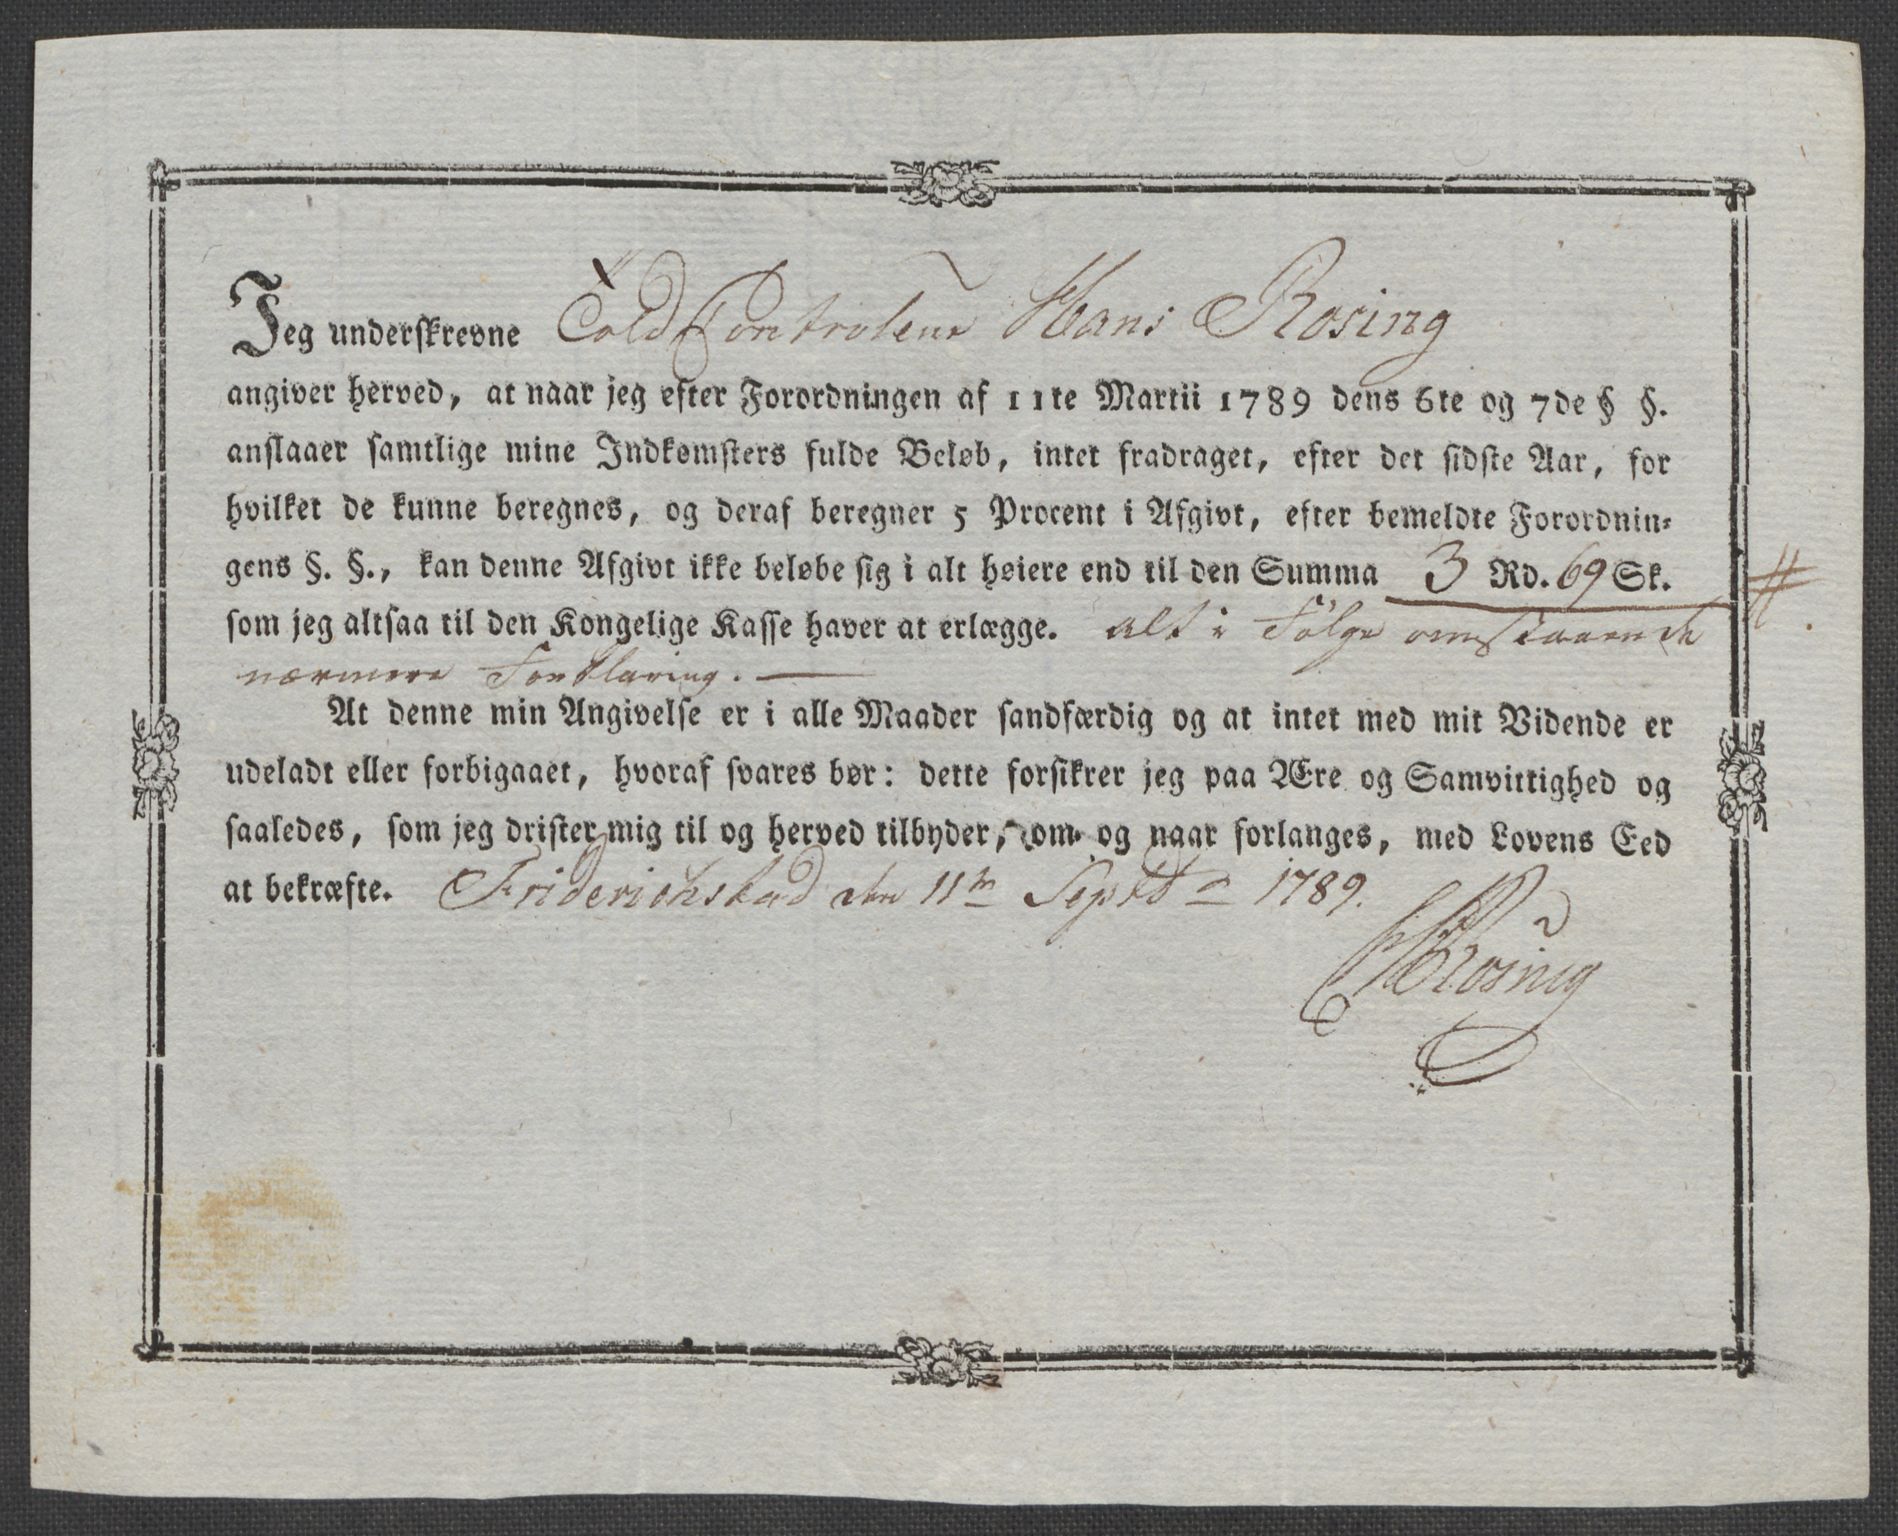 Jeg underskrevne Told Controleur Hans Rosing
angiver herved, at naar jeg efter Forordningen af 11te Martii 1789 dens 6te og 7de § §.
anslaaer samtlige mine Indkomsters fulde Beløb, intet fradraget, efter det sidste Aar, for
hvilket de kunne beregnes, og deraf beregner 5 Procent i Afgivt, efter bemeldte Forordnin-
gens §. §., kan denne Afgivt ikke beløbe sig i alt høiere end til den Summa 3 Rd. 69 Sk.
som jeg altsaa til den Kongelige Kasse haver at erlægge. alt i Følge omstaaende
nærmere Forklaring. —
At denne min Angivelse er i alle Maader sandfærdig og at intet med mit Vidende er
udeladt eller forbigaaet, hvoraf svares bør: dette forsikrer jeg paa Ære og Samvittighed og
saaledes, som jeg drister mig til og herved tilbyder, om og naar forlanges, med Lovens Eed
at bekræfte. Friderichstad den 11te Septbr 1789.
HRosing